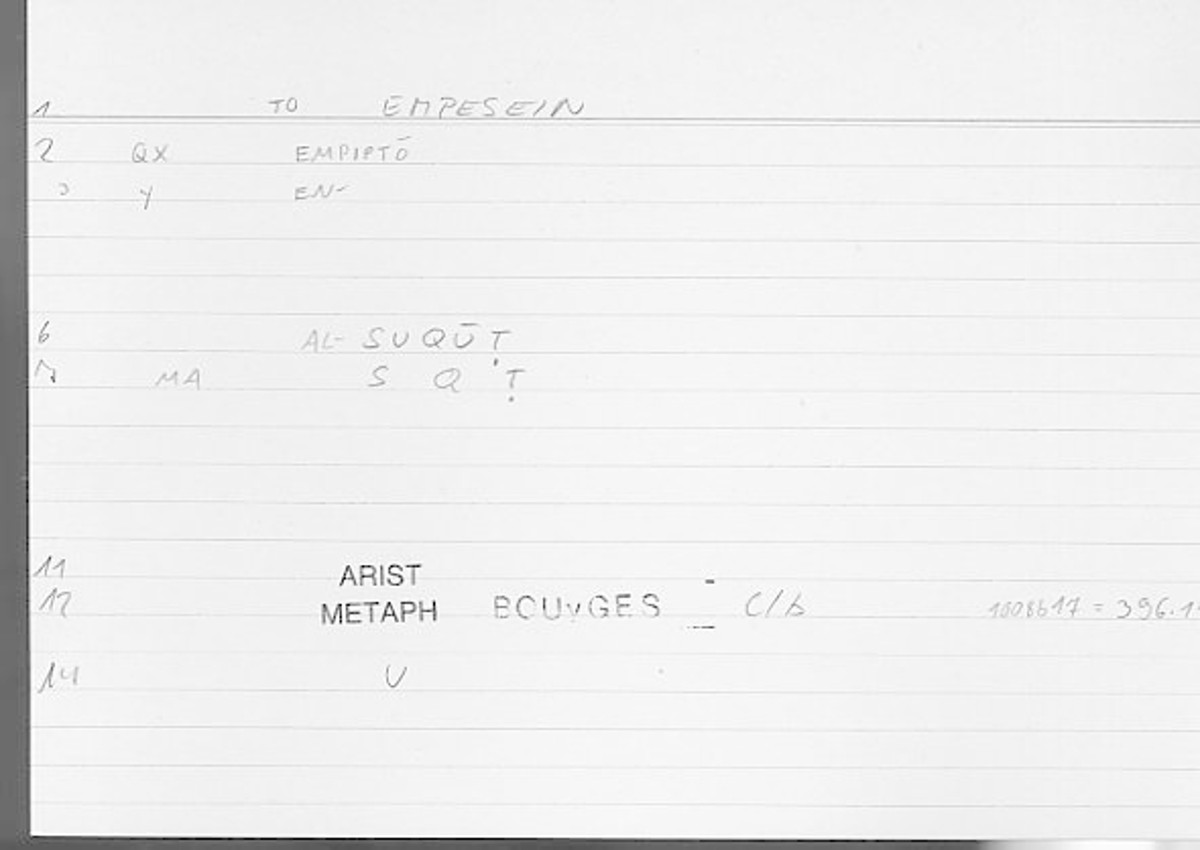 1 TO EMPESEIN
2 QX EMPIPTŌ
3 Y EN-
6 AL- SUQŪṬ
7 MA S Q Ṭ
11 ARIST
12 METAPH BOUYGES - C/b 1008b17 = 396.1
14 V